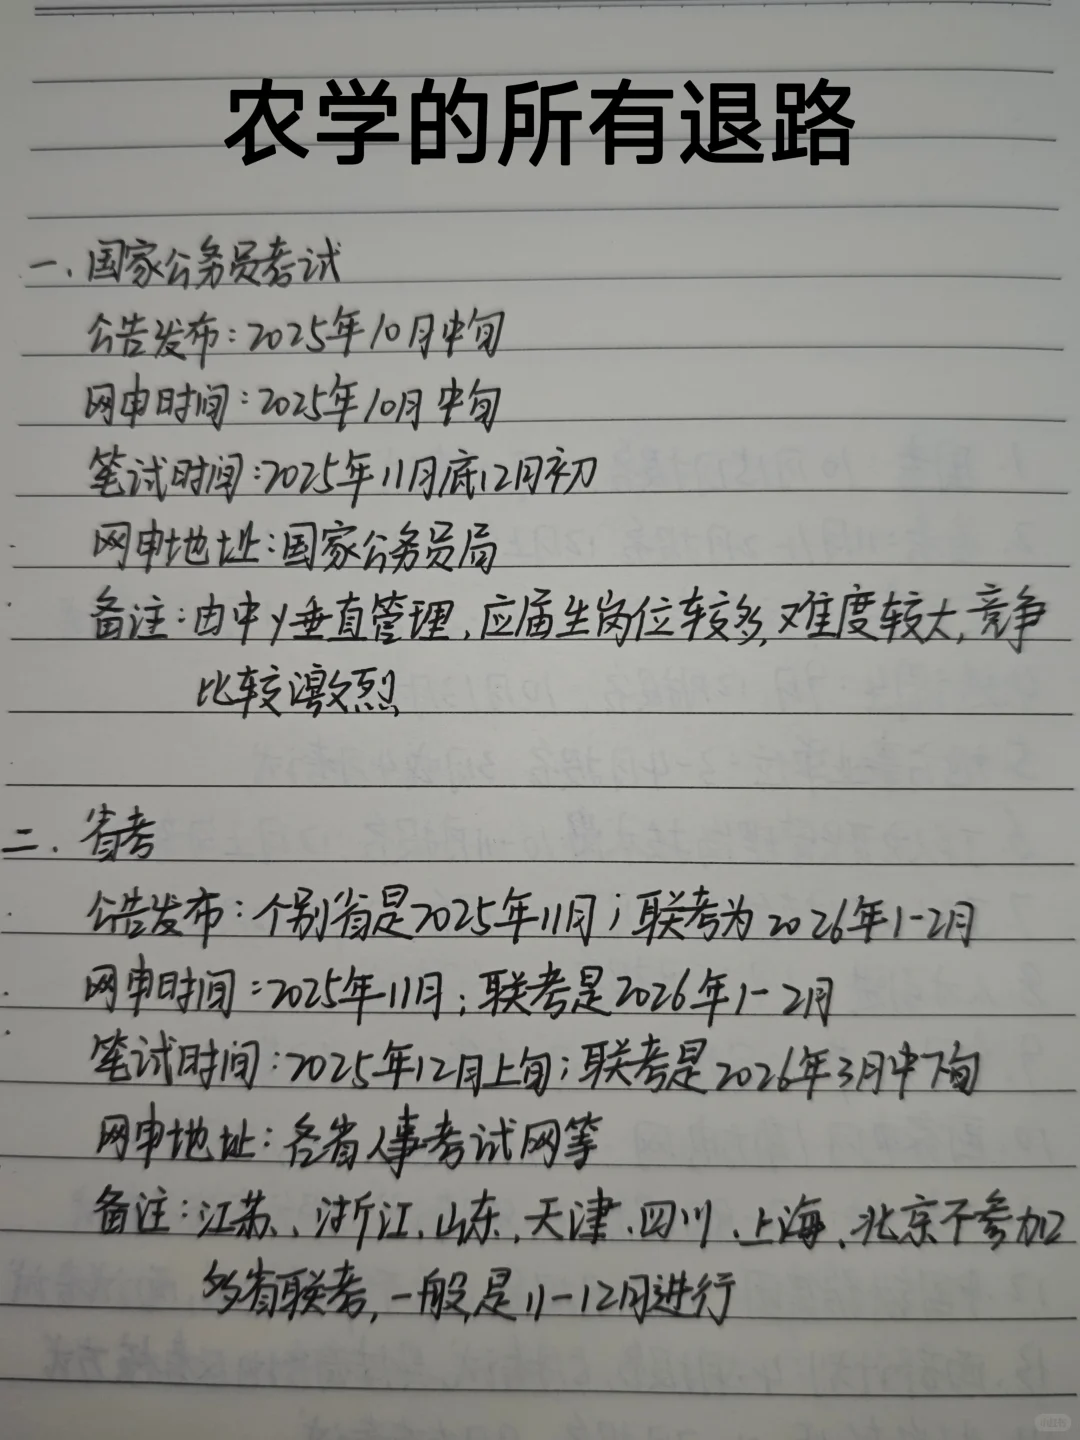 农学的所有退路
一.国家公务员考试
公告发布:2025年10月中旬
网申时间:2025年10月中旬
笔试时间:2025年11月底12月初
网申地址:国家公务员局
备注:由中y垂直管理,应届生岗位较多,难度较大,竞争
比较激烈
二.省考
公告发布:个别省是2025年11月;联考为2026年1-2月
网申时间:2025年11月;联考是2026年1-2月
笔试时间:2025年12月上旬;联考是2026年3月中下旬
网申地址:各省人事考试网等
备注:江苏、浙江、山东、天津、四川、上海、北京不参加
多省联考,一般是11-12月进行